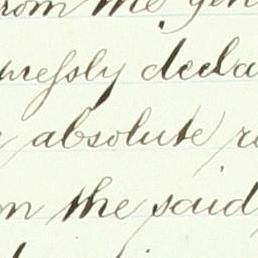 rom the gen
pressly decla
absolute r
m the said